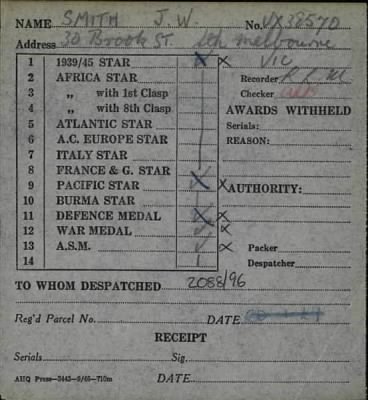 NAME SMITH J.W. No. VX38570
Address 30 Brook St. Sth Melbourne
1 1939/45 STAR X X VIC
2 AFRICA STAR Recorder
3 „ with 1st Clasp Checker
4 „ with 8th Clasp AWARDS WITHHELD
5 ATLANTIC STAR Serials:
6 A.C. EUROPE STAR REASON:
7 ITALY STAR
8 FRANCE & G. STAR
9 PACIFIC STAR X X AUTHORITY:
10 BURMA STAR
11 DEFENCE MEDAL X X
12 WAR MEDAL ✓ X
13 A.S.M. ✓ X Packer
14 Despatcher
TO WHOM DESPATCHED 2088/96
Reg'd Parcel No. DATE
RECEIPT
Serials Sig.
AHQ Press—3443—9/65—710m DATE